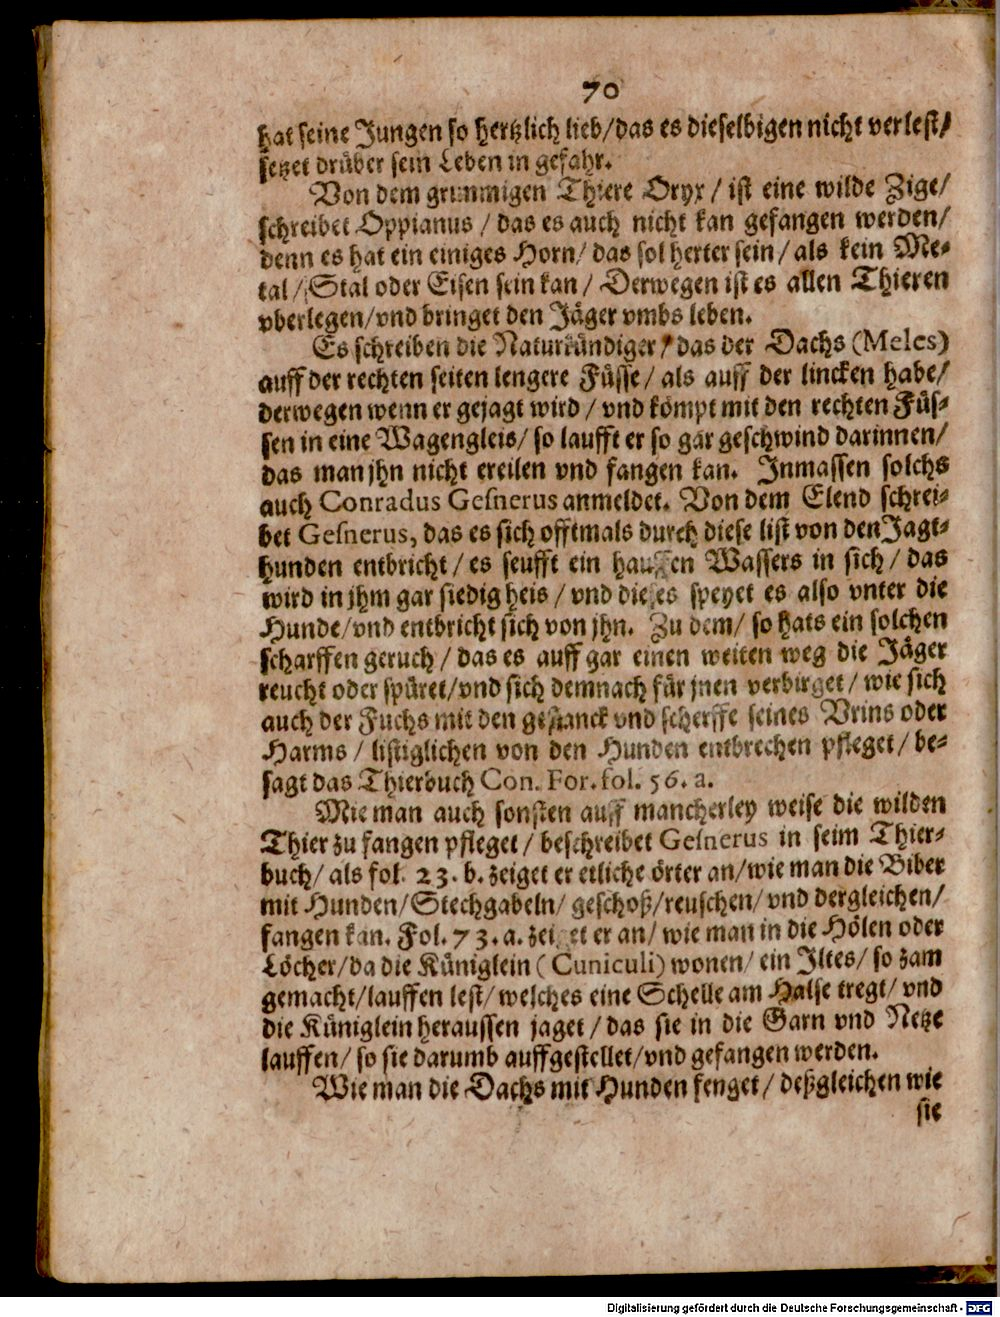 70
hat seine Jungen so hertzlich lieb/das es dieselbigen nicht verlest/
setzet drüber sein Leben in gefahr.
Von dem grimmigen Thiere Oryx/ ist eine wilde Zige/
schreibet Oppianus / das es auch nicht kan gefangen werden/
denn es hat ein einiges Horn/ das sol herter sein/ als kein Me-
tal/ Stal oder Eisen sein kan/ Derwegen ist es allen Thieren
vberlegen/vnd bringet den Jäger vmbs leben.
Es schreiben die Naturkündiger/ das der Dachs (Meles)
auff der rechten seiten lengere Füsse/ als auff der lincken habe/
derwegen wenn er gejagt wird / vnd kömpt mit den rechten Füs-
sen in eine Wagengleis/ so laufft er so gar geschwind darinnen/
das man jhn nicht ereilen vnd fangen kan. Inmassen solchs
auch Conradus Gesnerus anmeldet. Von dem Elend schrei-
bet Gesnerus, das es sich offtmals durch diese list von den Jagt-
hunden entbricht / es seufft ein hauffen Wassers in sich / das
wird in jhm gar siedig heis / vnd dieses speyet es also vnter die
Hunde/vnd entbricht sich von jhn. Zu dem/ so hats ein solchen
scharffen geruch / das es auff gar einen weiten weg die Jäger
reucht oder spüret/vnd sich demnach für jnen verbirget/ wie sich
auch der Fuchs mit den gestanck vnd scherffe seines Vrins oder
Harms / listiglichen von den Hunden entbrechen pfleget/ be-
sagt das Thierbuch Con. For. fol. 56. a.
Wie man auch sonsten auff mancherley weise die wilden
Thier zu fangen pfleget / beschreibet Gesnerus in seim Thier-
buch/ als fol. 23. b. zeiget er etliche örter an/wie man die Biber
mit Hunden/Stechgabeln/ geschoß/reuschen/vnd dergleichen/
fangen kan. Fol. 73. a. zeiget er an/ wie man in die Hölen oder
Löcher/da die Küniglein (Cuniculi) wonen/ ein Iltes/ so zam
gemacht/lauffen lest/ welches eine Schelle am Halse tregt/ vnd
die Küniglein heraussen jaget / das sie in die Garn vnd Netze
lauffen/ so sie darumb auffgestellet/vnd gefangen werden.
Wie man die Dachs mit Hunden fenget/ deßgleichen wie
sie
Digitalisierung gefördert durch die Deutsche Forschungsgemeinschaft - DFG